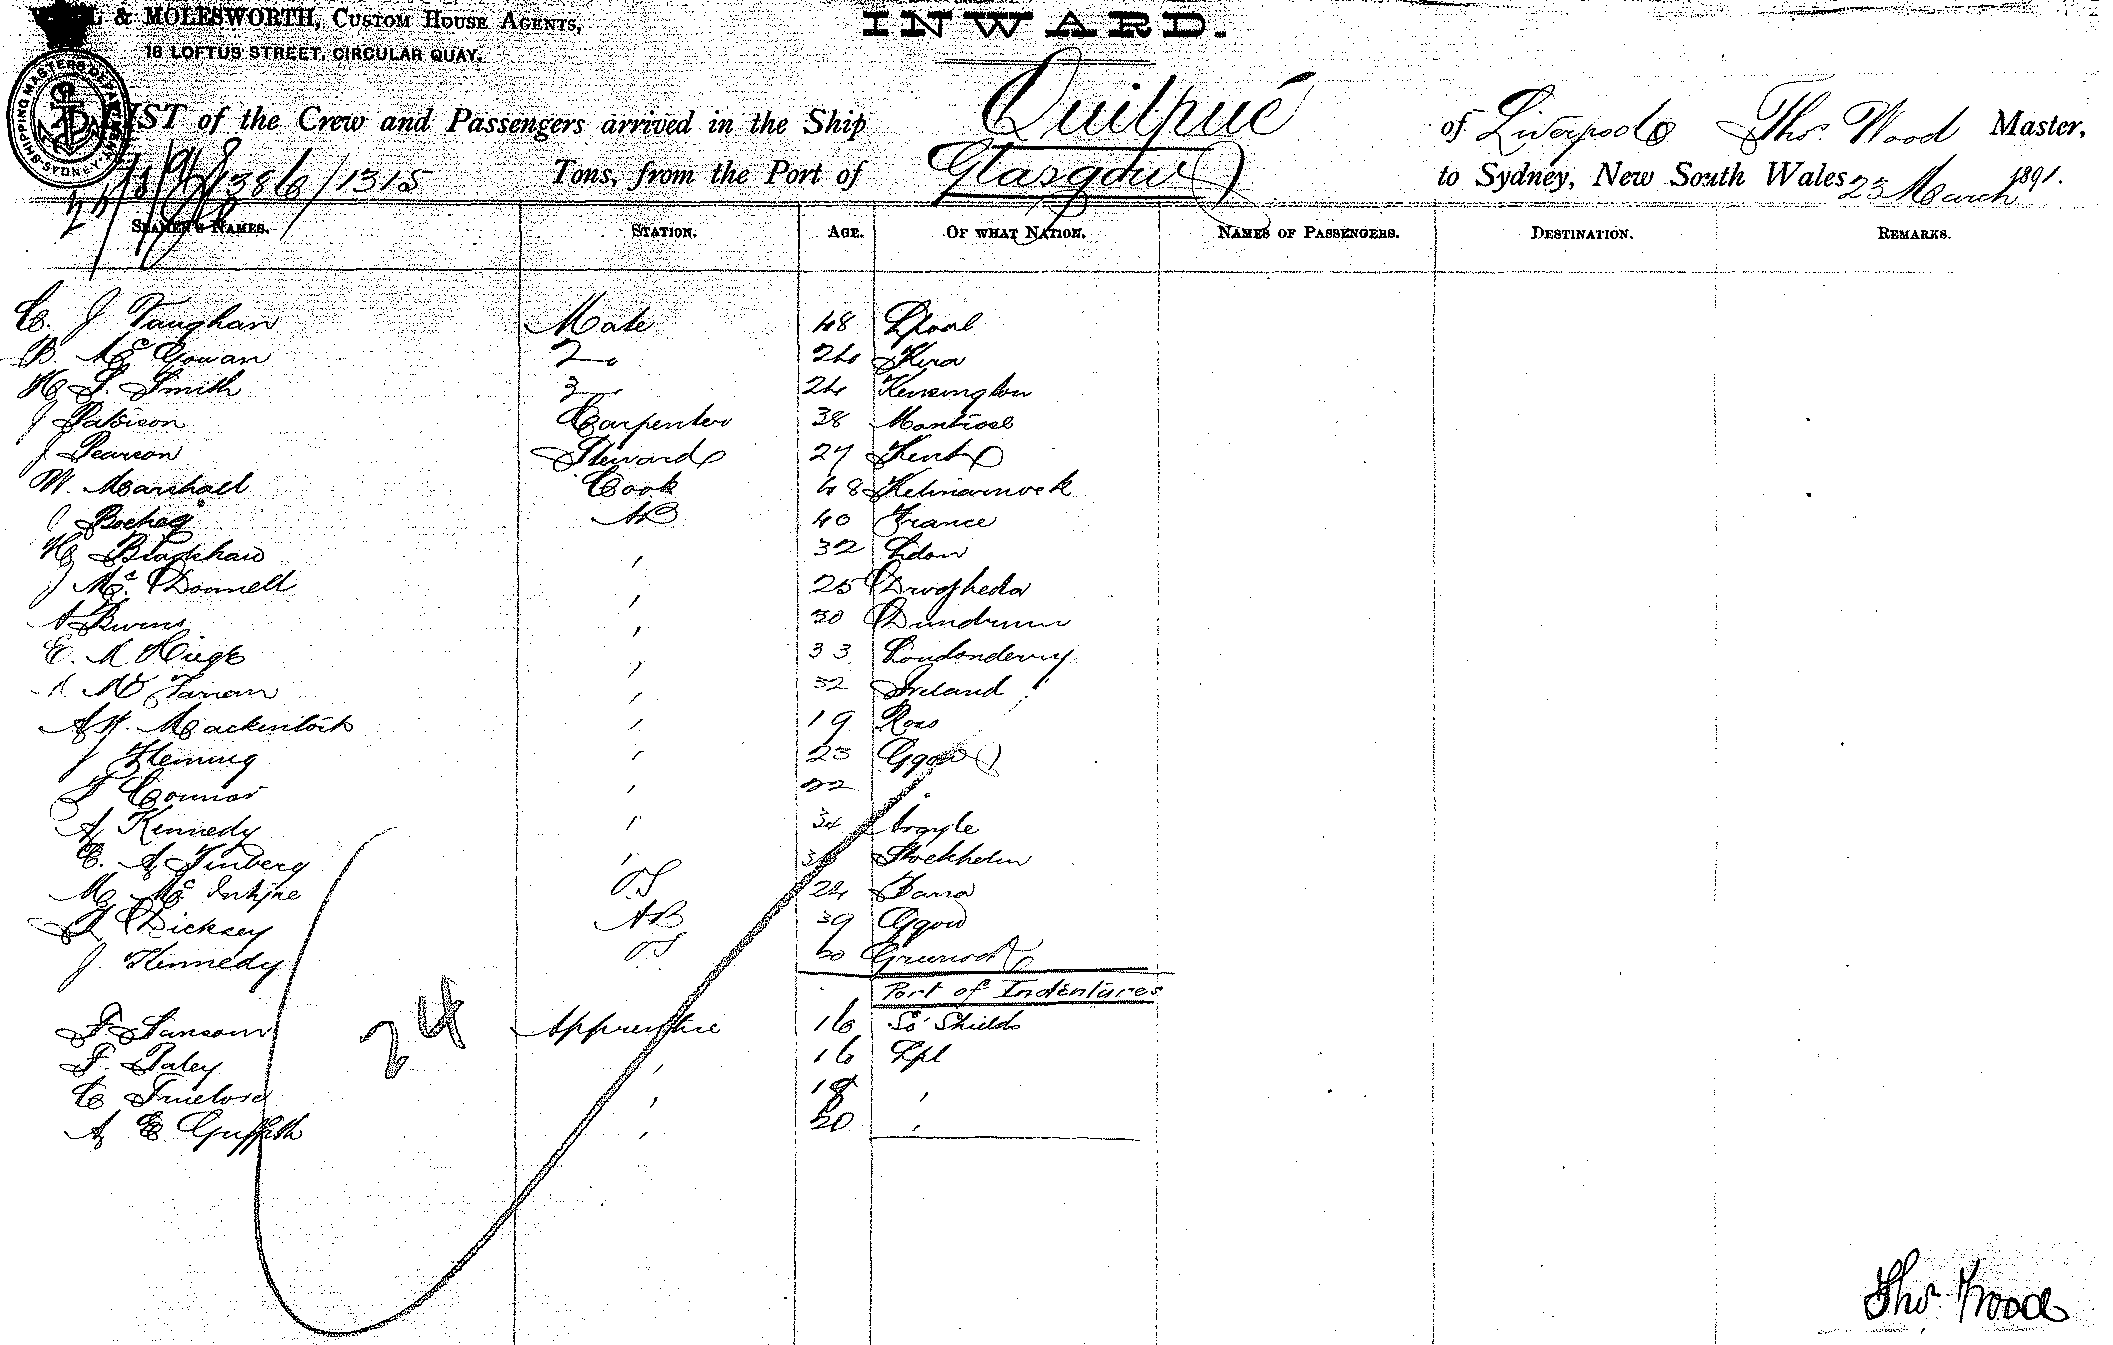 & MOLESWORTH, CUSTOM HOUSE AGENTS,
INWARD.
18 LOFTUS STREET, CIRCULAR QUAY.
SHIPPING MASTERS DEPARTMENT SYDNEY
LIST of the Crew and Passengers arrived in the Ship Quilpué of Liverpool Thos. Wood Master,
1386/1315 Tons, from the Port of Glasgow to Sydney, New South Wales 23 March 1891.
SEAMEN'S NAMES. STATION. AGE. OF WHAT NATION. NAMES OF PASSENGERS. DESTINATION. REMARKS.
C. J. Vaughan Mate 48 Lpool
B. Mc Gowan 2 24
H. S. Smith 3 24 Kensington
J Paterson Carpenter 38 Montrose
J Pearson Steward 27 Kent
W. Marshall Cook 48 Kelmarnock
J AB 40 France
H Bradshaw " 32 Ldon
J Mc Donnell " 25 Drogheda
A Burns " 30 Dundrum
E. " 33 Londonderry
" 32 Ireland
A H. Mackintosh " 19 Ross
J Fleming " 23 Ggow
Connor " 22 "
A Kennedy " 34 Argyle
C. A " Stockholm
M Mc Intyre OS 24
Dicksey AB 39 Ggow
J. Kennedy OS Greenock
Port of Indentures
F Sansom Apprentice 16 So Shields
24
F. Paley " 16 Lpl
C Truelove " 18 "
A E Griffith " 20 "
Thos. Wood